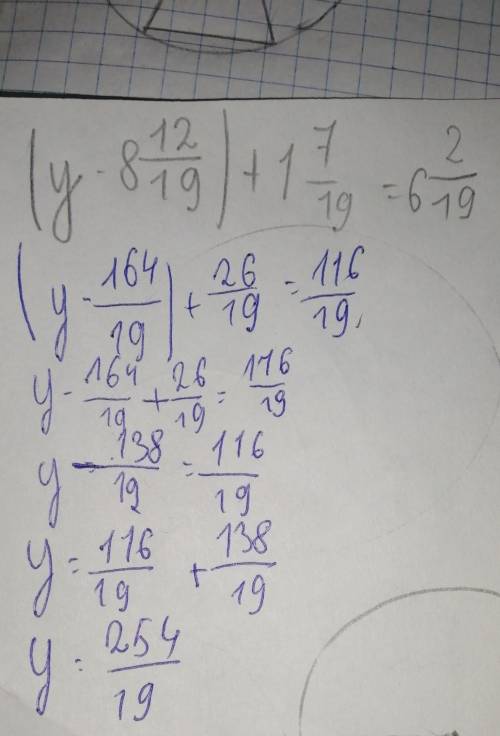 (y - 8 12/19) + 1 7/19 = 6 2/19
(y - 164/19) + 26/19 = 116/19,
y - 164/19 + 26/19 = 116/19
y - 138/19 = 116/19
y = 116/19 + 138/19
y = 254/19